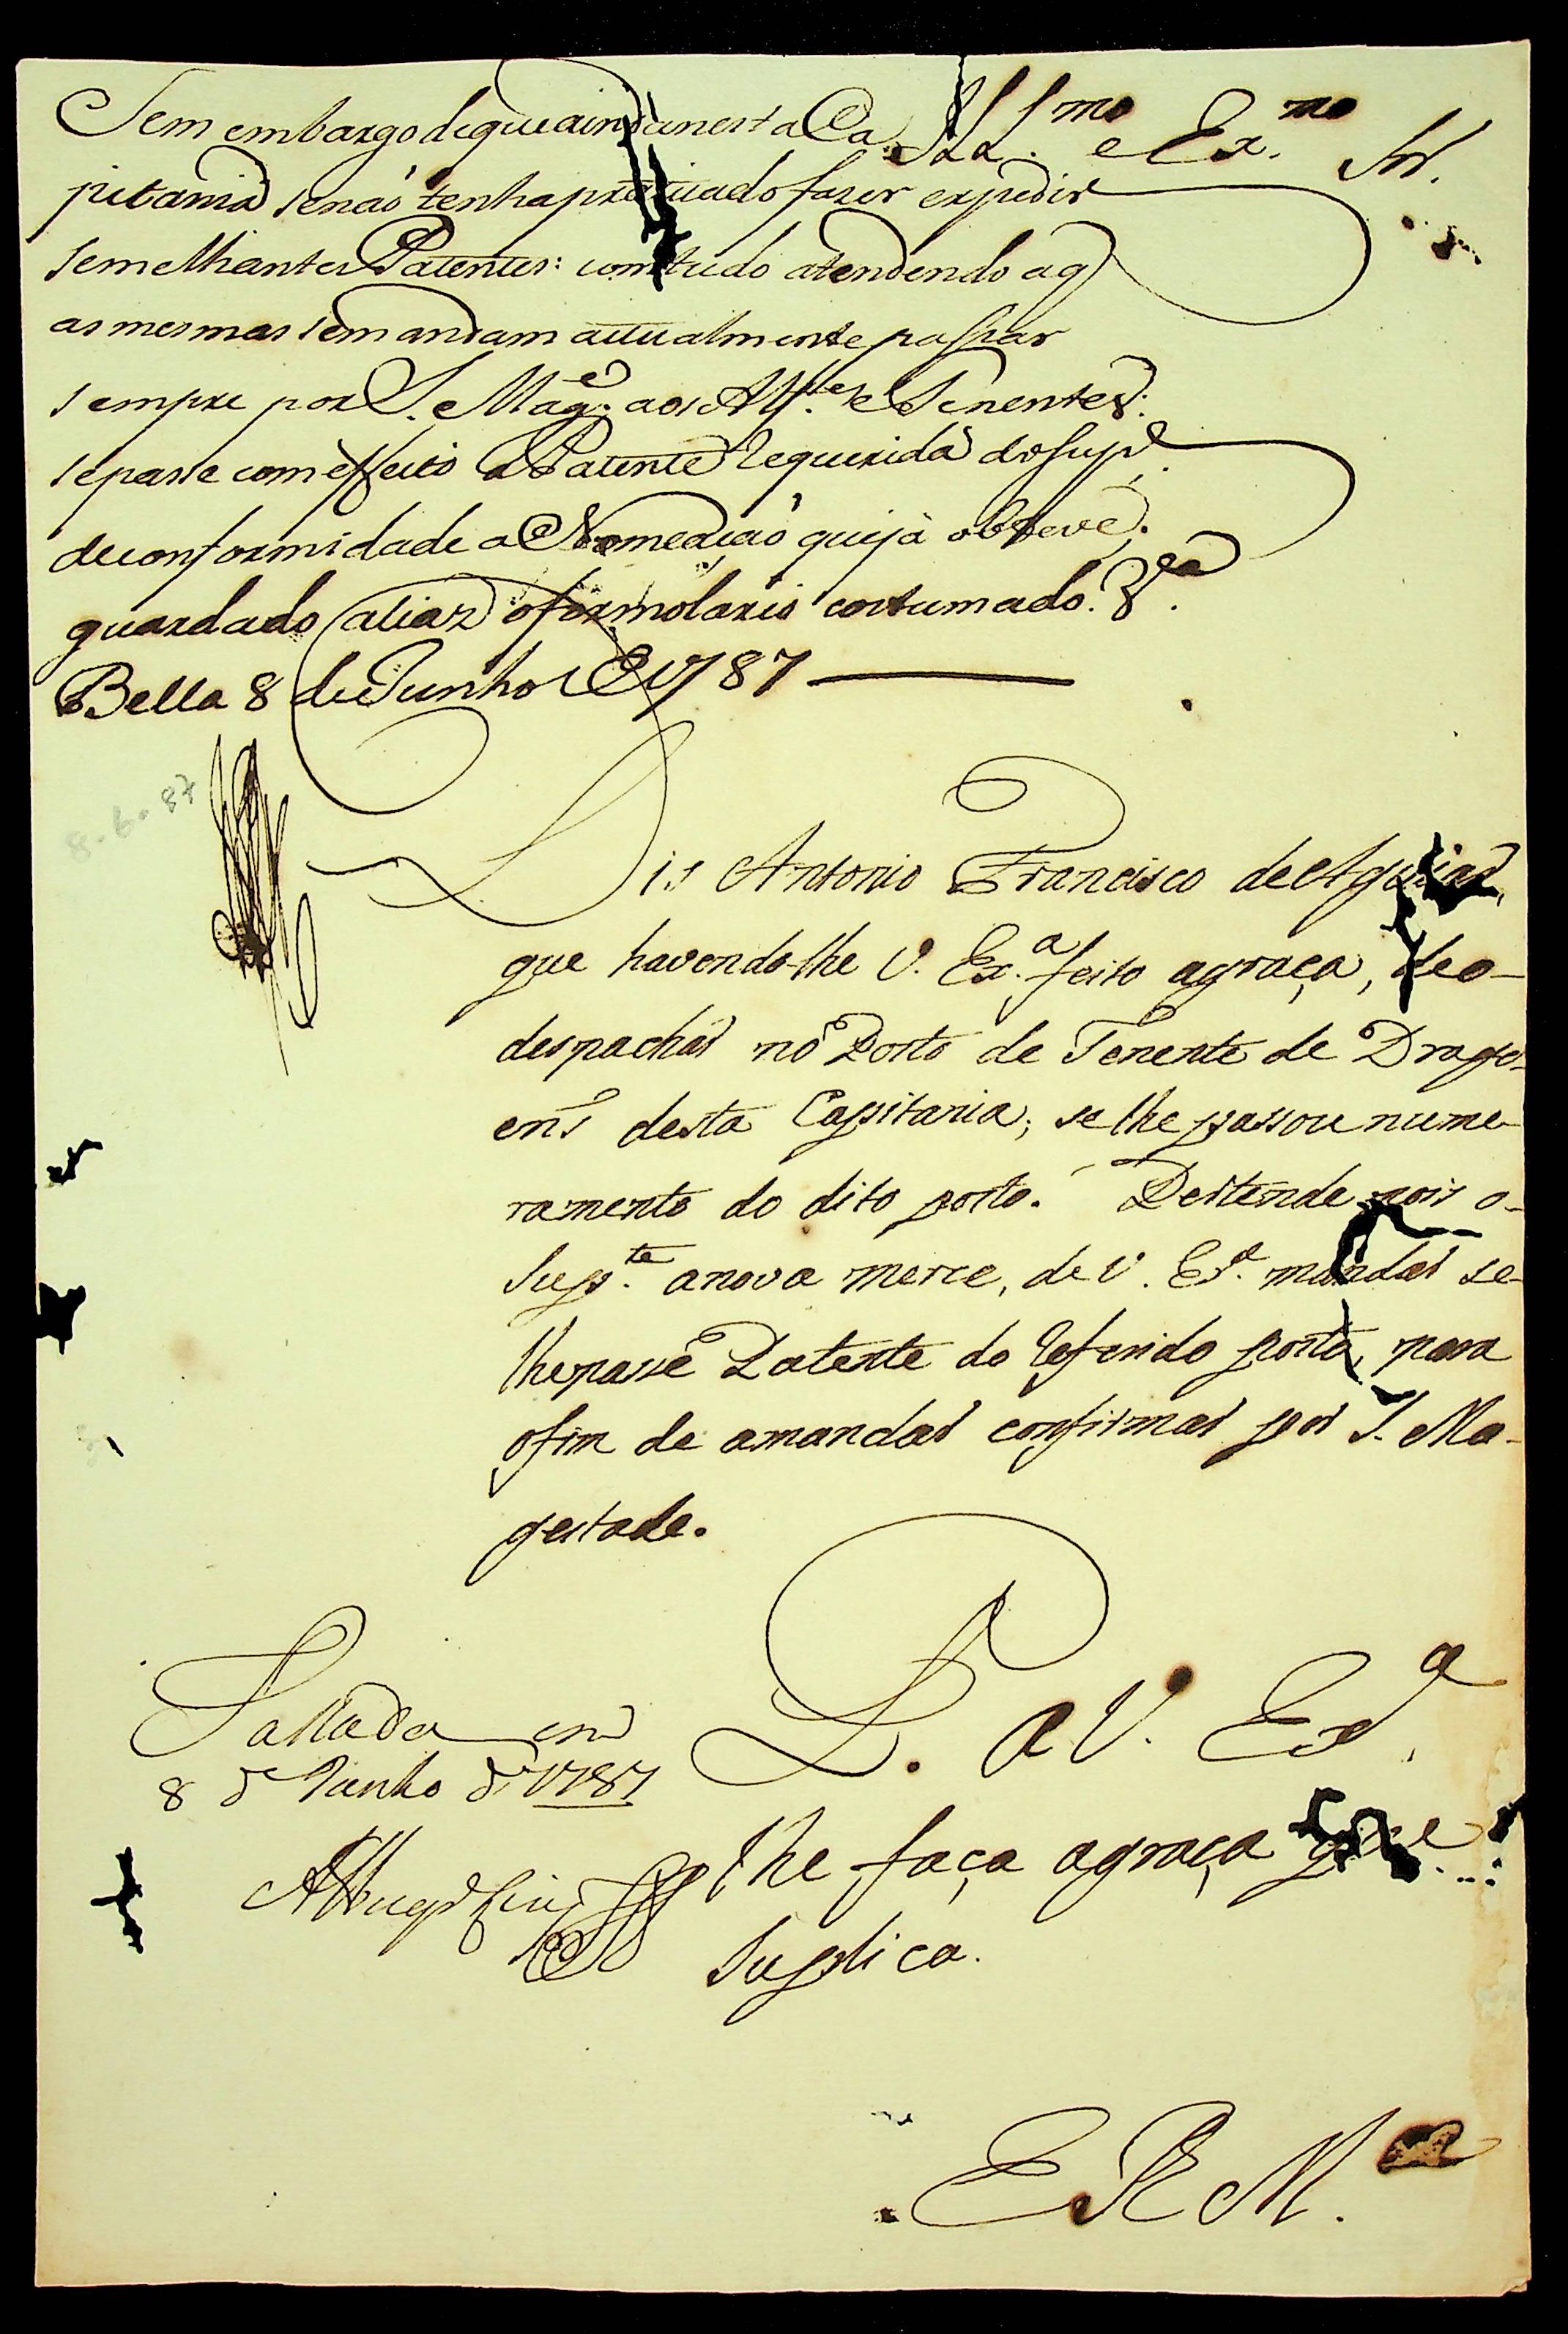 Ill.mo e Ex.mo Snr.
Sem embargo de que ainda nesta Ca-
pitania se não tenha praticado fazer expedir
semelhantes Patentes: comtudo atendendo a q
as mesmas se mandam actualmente passar
sempre por S. Mag.e aos Alf.es e Tenentes:
se passe com effeito a Patente requerida do Sup.e
de conformidade a Nomeação que já obteve,
guardado aliaz o formolario costumado. V.a
Bella 8 de Junho de 1787
8-6-87
Dis Antonio Francisco de Aguiar,
que havendo-lhe V. Ex.a feito a graça, de o-
despachar no Posto de Tenente de Drago-
ens desta Capitania; se lhe passou nume-
ramento do dito posto. Pertende pois o-
Sup.te a nova merce, de V. Ex.a mandar se-
lhe passe Patente do referido posto, para
o fim de a mandar confirmar por S. Ma-
gestade.
P. a V. Ex.a
lhe faça a graça que
suplica.
Passada em
8 de Junho de 1787
E R M.ce